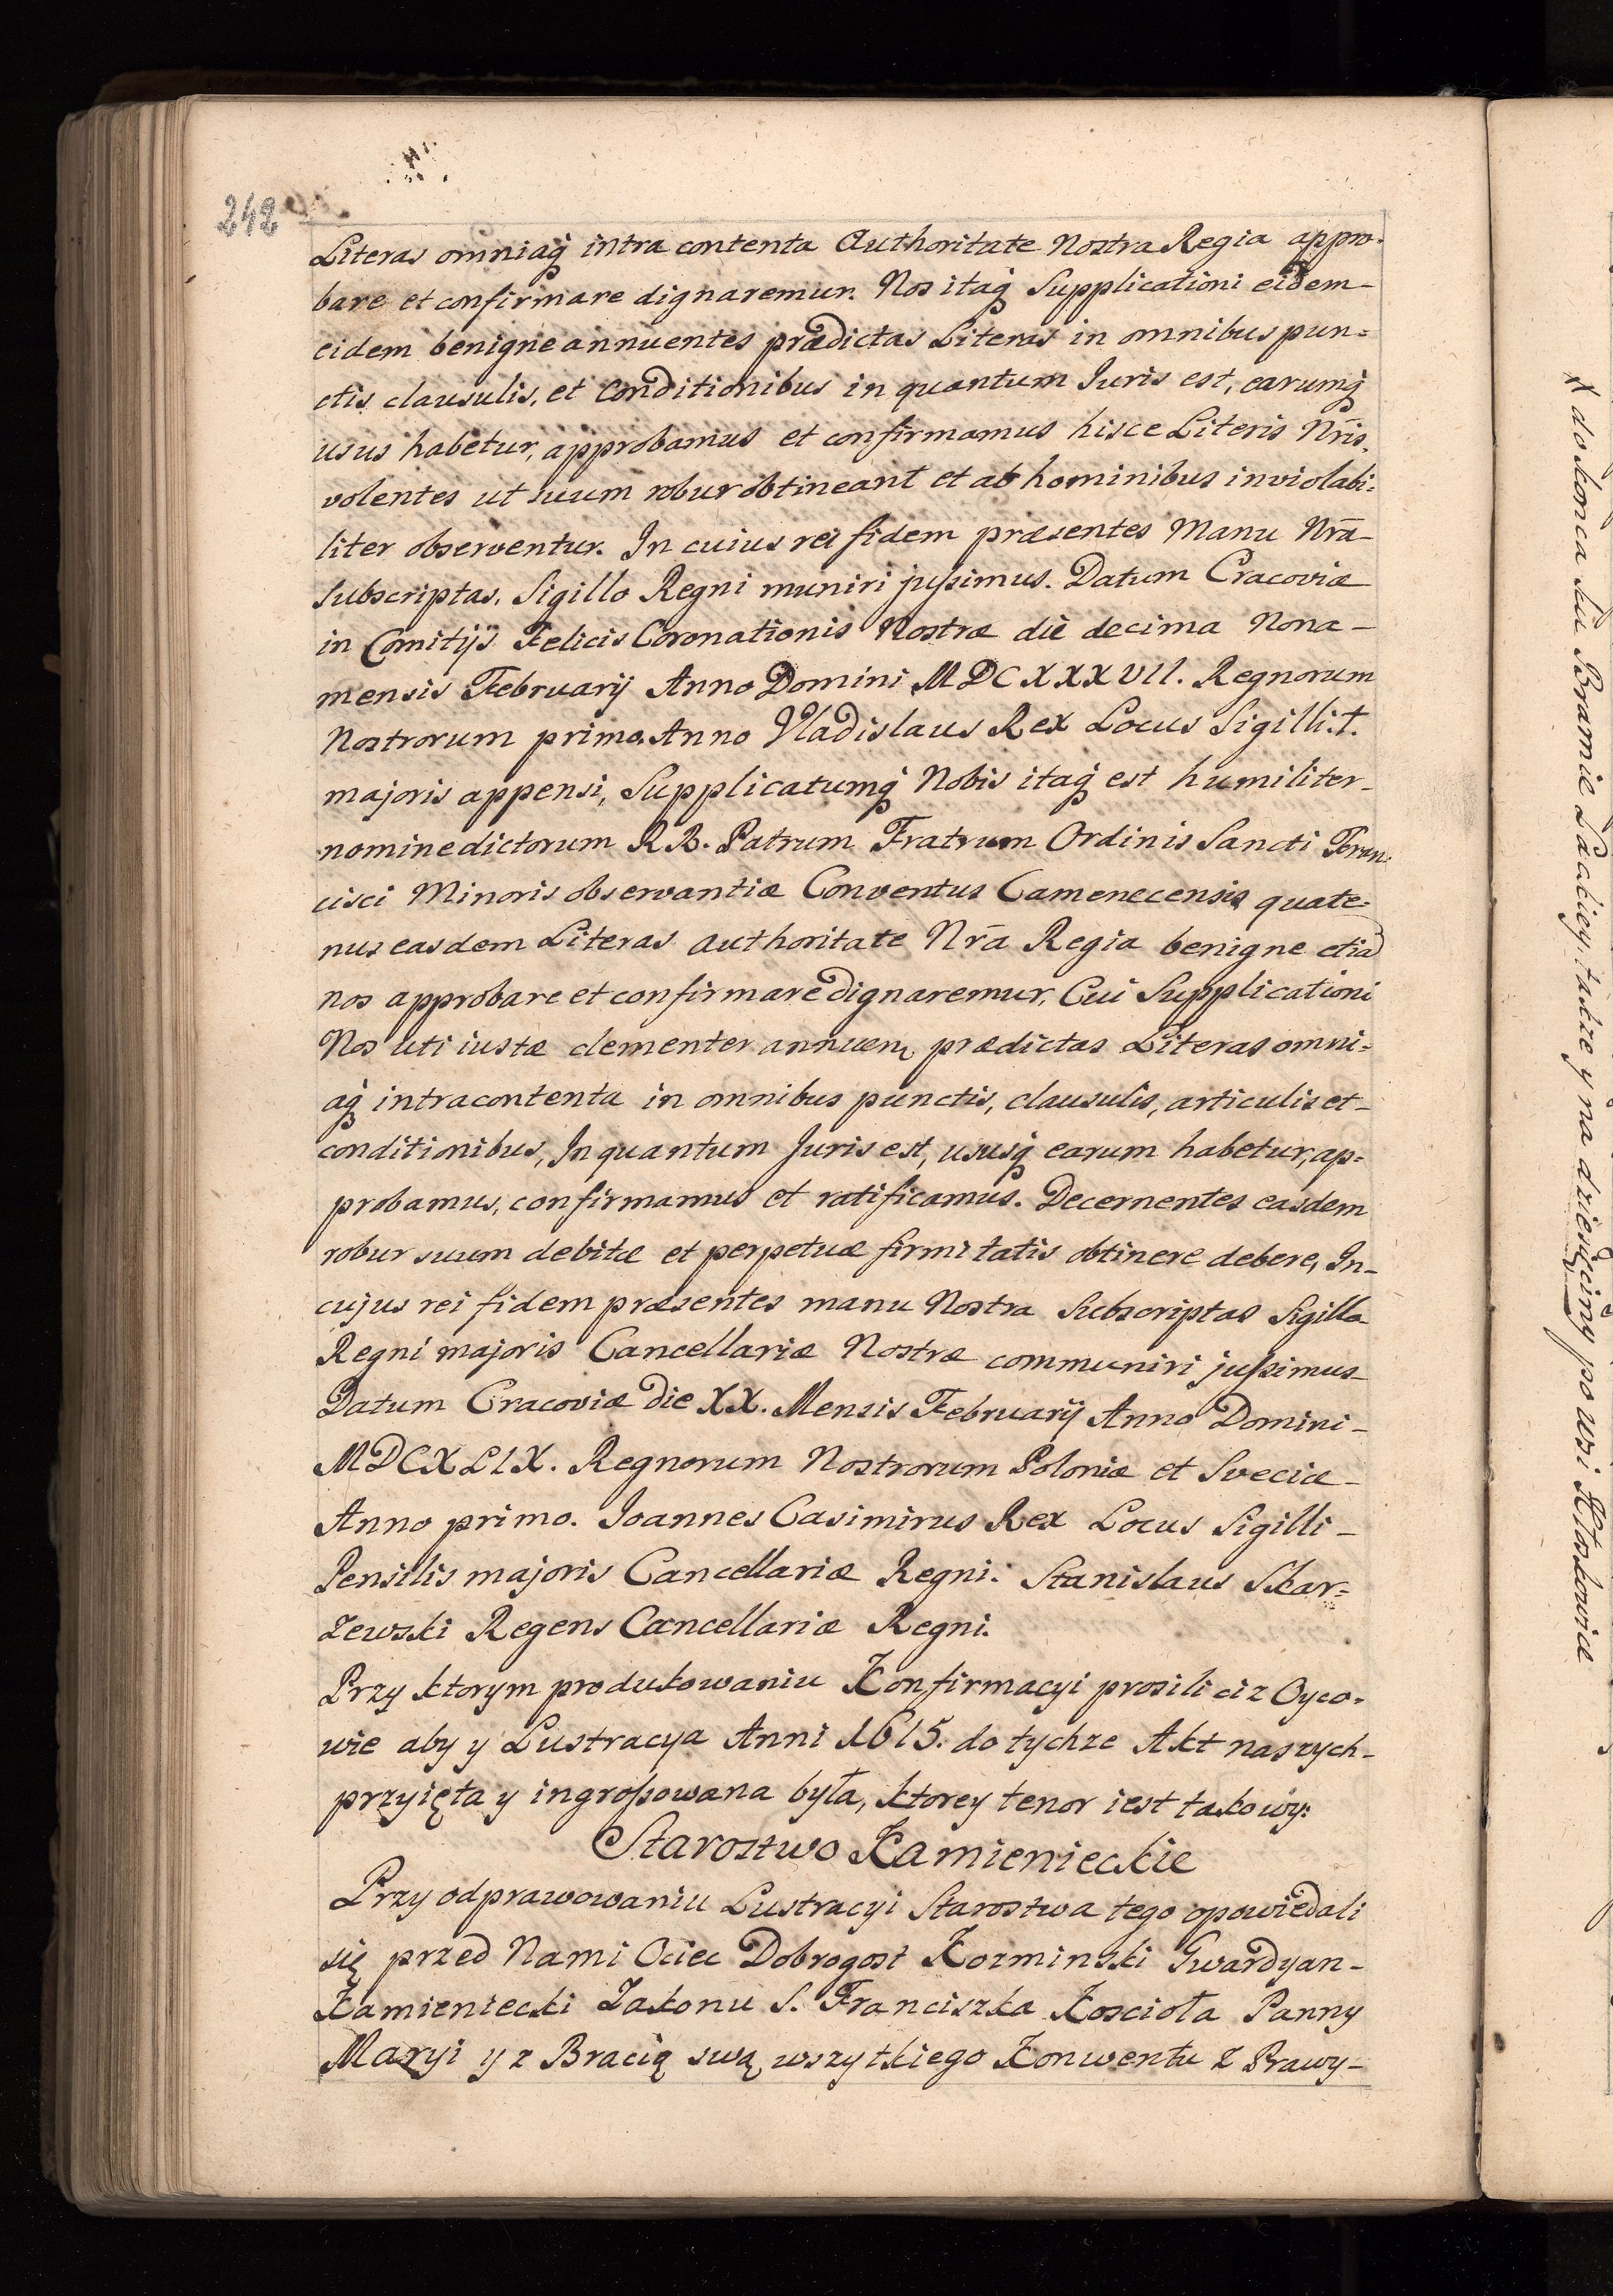 242
Literas omniaq́ intra contenta Authoritate Nostra Regia appro-
bare et confirmare dignaremur. Nos itaq́ Supplicationi eidem-
eidem benigne annuentes prædictas Literas in omnibus pun=
ctis, clausulis, et Conditionibus in quantum Juris est, earumq́
usus habetur, approbamus et confirmamus hisce Literis Nr̄is,
volentes ut suum robur obtineant et ab hominibus inviolabi=
liter observentur. In cuius rei fidem præsentes Manu Nr̄a-
subscriptas, Sigillo Regni muniri jussimus. Datum Cracoviæ
in Comitijs Felicis Coronationis Nostræ die decima Nona-
mensis Februarij Anno Domini MDCXXXVII. Regnorum
Nostrorum primo, Anno Vladislaus Rex Locus Sigilli: t.
majoris appensi, Supplicatumq́ Nobis itaq́ est humiliter-
nomine dictorum RR. Patrum Fratrum Ordinis Sancti Fran:
cisci Minoris observantiæ Conventus Camenecensis quate=
nus easdem Literas authoritate Nr̄a Regia benigne etia
nos approbare et confirmare dignaremur, Cui Supplicationi
Nos uti iustæ clementer annuen, prædictas Literas omni=
aq́ intracontenta in omnibus punctis, clausulis, articulis et-
conditionibus, In quantum Juris est, ususq́ earum habetur, ap=
probamus, confirmamus et ratificamus. Decernentes easdem
robur suum debitæ et perpetuæ firmitatis obtinere debere, In-
cujus rei fidem præsentes manu Nostra Subscriptas Sigillo
Regni majoris Cancellariæ Nostræ communiri jussimus-
Datum Cracoviæ die XX. Mensis Februarij Anno Domini-
MDCXLIX. Regnorum Nostrorum Poloniæ et Sveciæ-
Anno primo. Joannes Casimirus Rex Locus Sigilli-
Pensilis majoris Cancellariæ Regni: Stanislaus Skar=
zewski Regens Cancellariæ Regni.
Przy ktorym produkowaniu Konfirmacyi prosili ciz Oyco=
wie aby y Lustracya Anni 1615. do tychze Akt naszych-
przyięta y ingrossowana była, ktorey tenor iest takowy:
Starostwo Kamienieckie
Przy odprawowaniu Lustracyi Starostwa tego opowiedali
się przed Nami Ociec Dobrogost Kozminski Gwardyan-
Kamieniecki Zakonu S. Franciszka Koscioła Panny
Maryi y z Bracią swą, wszytkiego Konwentu z Prawy-
do konca ku Bramie Lackiey, takze y na dziesięciny po wsi